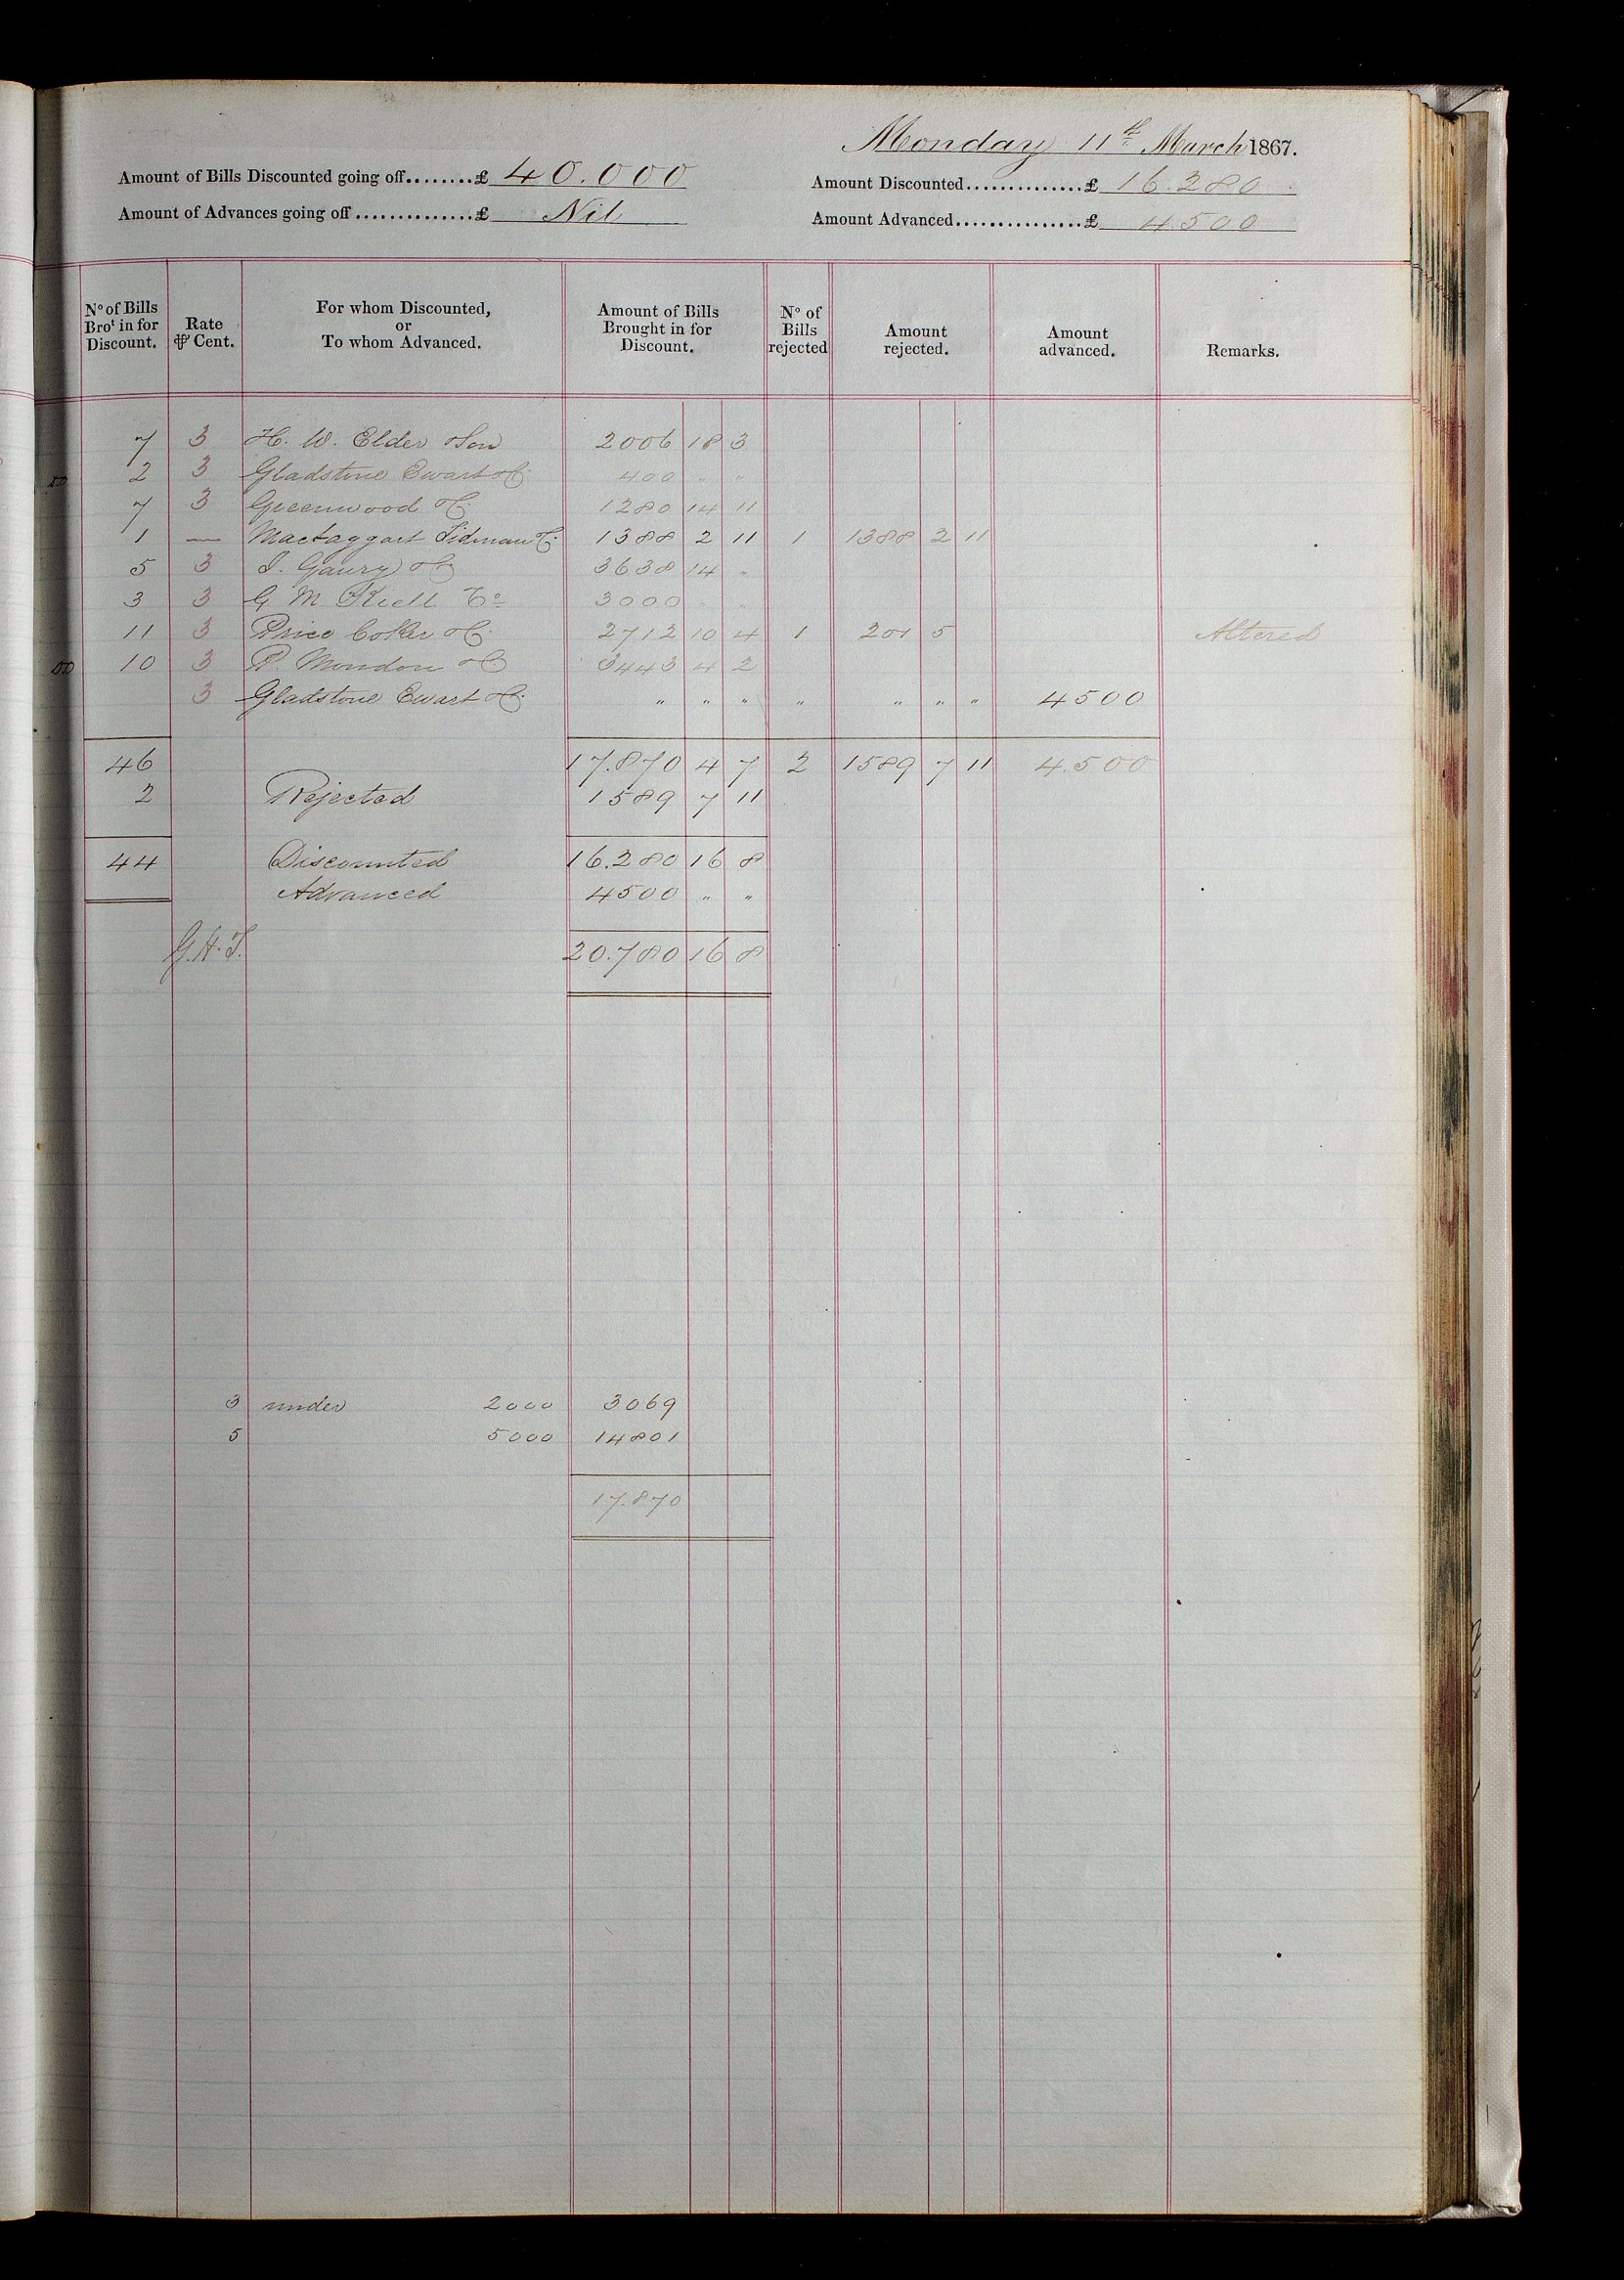 Monday 11th March 1867.
Amount of Bills Discounted going off........£ 40.000
Amount Discounted..............£ 16.280
Amount of Advances going off ..............£ Nil
Amount Advanced...............£ 4500
No of Bills Brot in for Discount. Rate ⅌ Cent. For whom Discounted, or To whom Advanced. Amount of Bills Brought in for Discount. No of Bills rejected Amount rejected. Amount advanced. Remarks.
7 3 H. W. Elder & Son 2006 18 3
2 3 Gladstone Ewart & Co 400 " "
7 3 Greenwood & Co 1280 14 11
1 — Mactaggart Tidman & Co 1388 2 11 1 1388 2 11
5 3 & Co 3638 14 "
3 3 G M Kiell Co 3000 " "
11 3 Price Coker & Co 2712 10 4 1 201 5 Altered
10 3 P. & Co 3443 4 2
3 Gladstone Ewart & Co " " " " " " " 4500
46 17.870 4 7 2 1589 7 11 4.500
2 Rejected 1589 7 11
44 Discounted 16.280 16 8
Advanced 4500 " "
G.H.T. 20.780 16 8
3 under 2000 3069
5 5000 14801
17.870